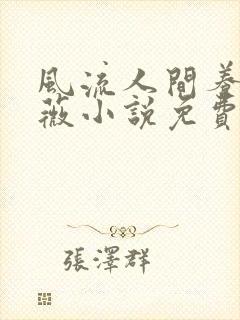 風流人間養
薇小說免費
張澤群